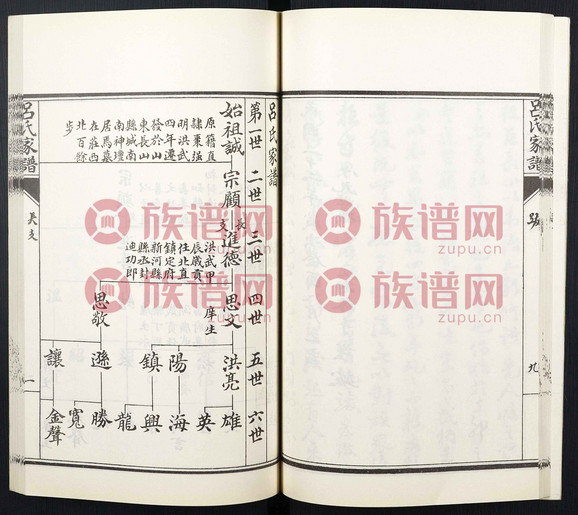 呂氏家譜
呂氏家譜
第一世
二世
三世
四世
五世
六世
始祖誠
原籍直
隸棗強
明洪武
四年遷
發於山
東長山
縣城南
南神壇
居焉墓
在莊西
北百餘
步
宗顧
長支
進德
洪武甲
辰歲貢
任北直
鎮定府
新河縣
縣丞封
迪功郎
思文
庠生
思敬
洪亮
陽
鎮
遜
讓
雄
英
海
興
龍
勝
寬
金聲
呂氏家譜
長支
一
族谱网
zupu.cn
族谱网
zupu.cn
族谱网
zupu.cn
族谱网
zupu.cn